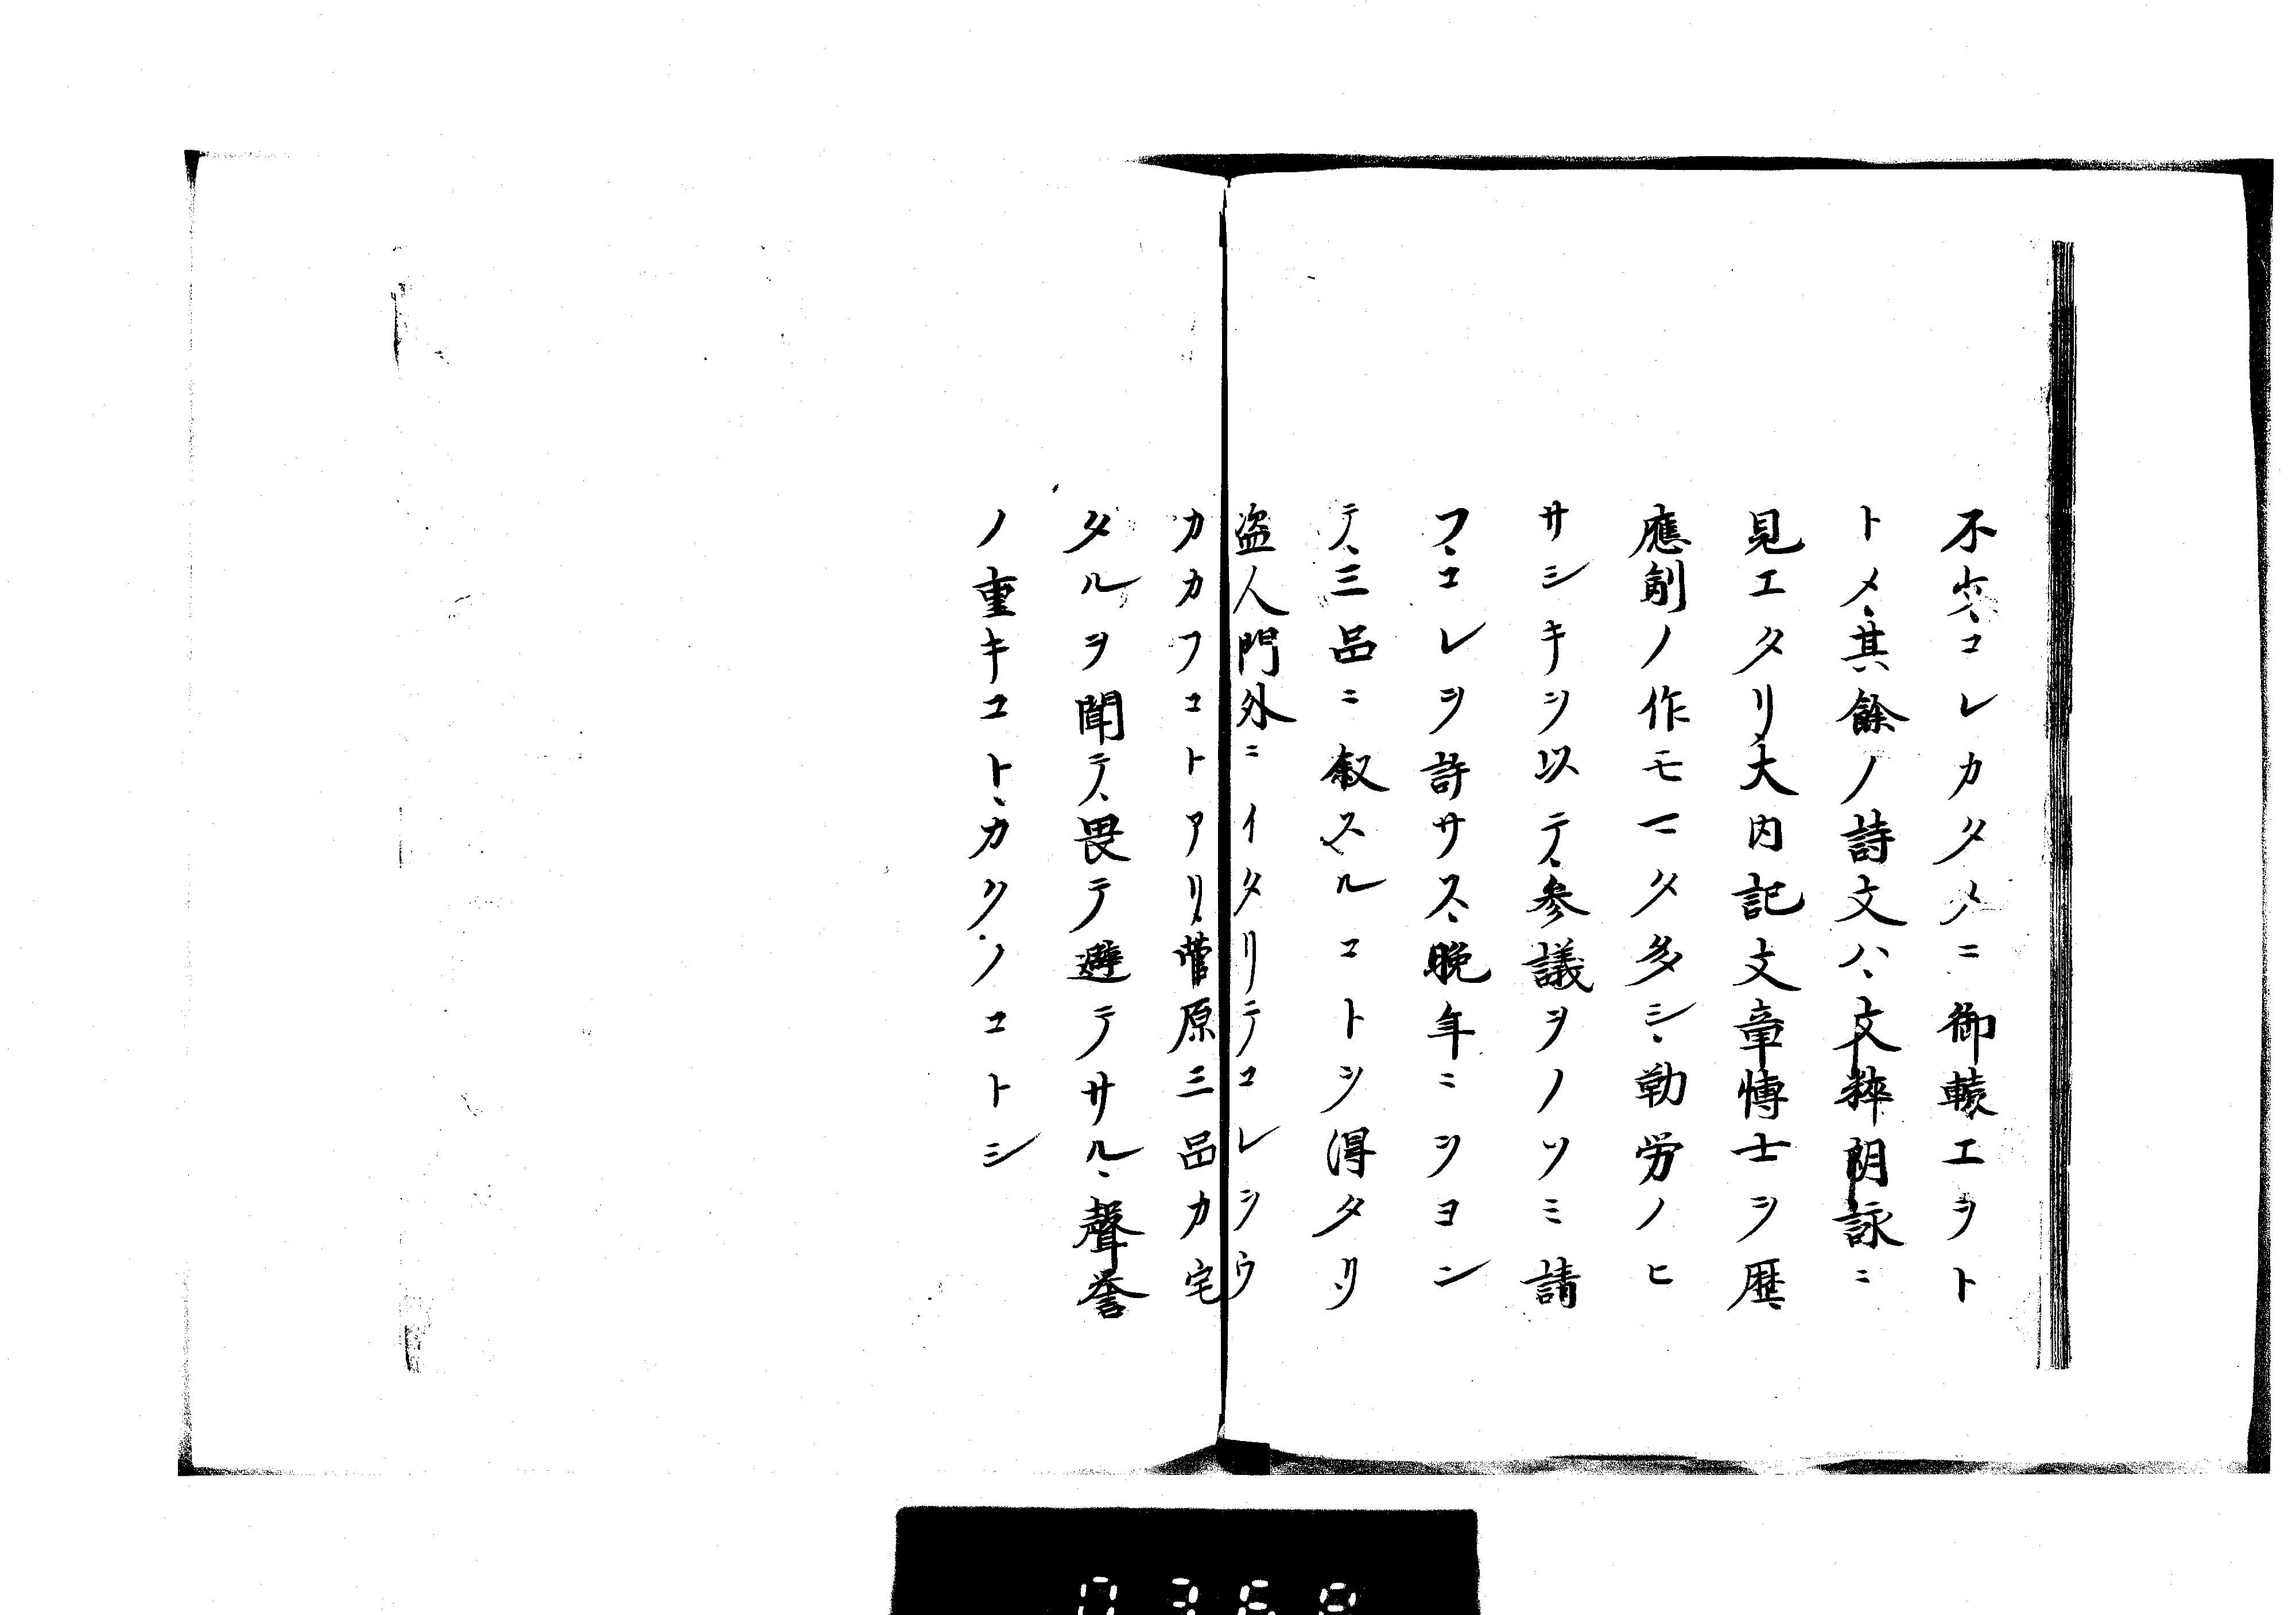 不尖、コレカタメニ御轅エヲト
トメ、其餘ノ詩文ハ、文粹朗詠ニ
見エタリ、大内記文章博士ヲ歴、
應制ノ作モマタ多シ、勤労ノヒ
サシキヲ以テ、参議ヲノソミ請
フ、コレヲ許サス、晩年ニヲヨン
テ、三品ニ叙スルコトヲ得タリ、
盗人門外ニイタリテコレヲウ
カカフコトアリ、菅原三品カ宅
タルヲ聞テ、畏テ避テサル、聲誉
ノ重キコト、カクノコトシ